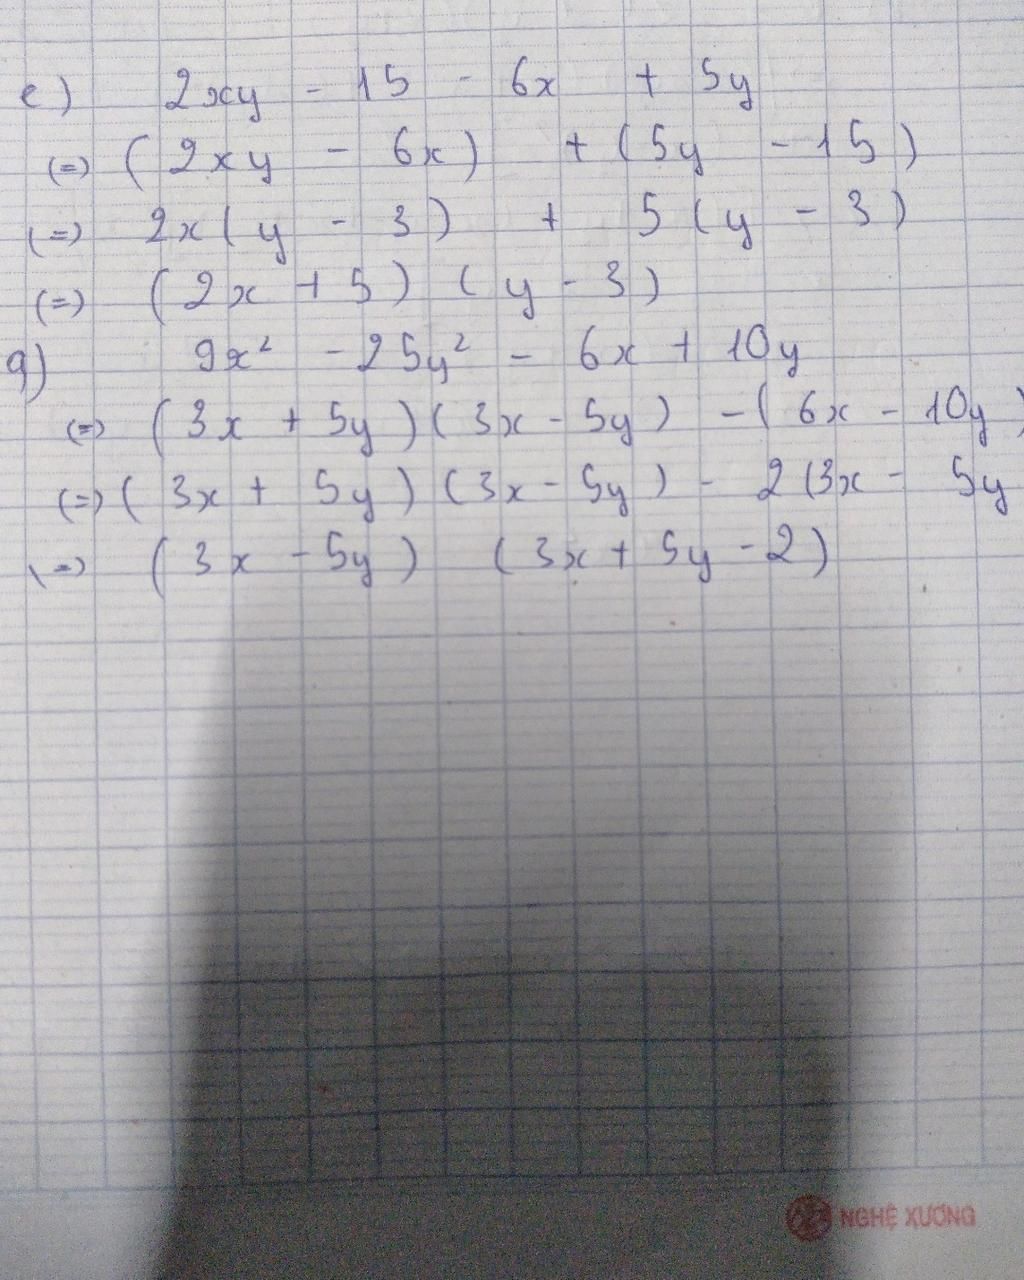 e) 2xy - 15 - 6x + 5y
(=) (2xy - 6x) + (5y - 15)
(=) 2x(y - 3) + 5(y - 3)
(=) (2x + 5) (y - 3)
g) 9x² - 25y² - 6x + 10y
(=) (3x + 5y)(3x - 5y) - (6x - 10y)
(=) (3x + 5y)(3x - 5y) - 2(3x - 5y
(=) (3x - 5y) (3x + 5y - 2)
NGHỆ XƯƠNG